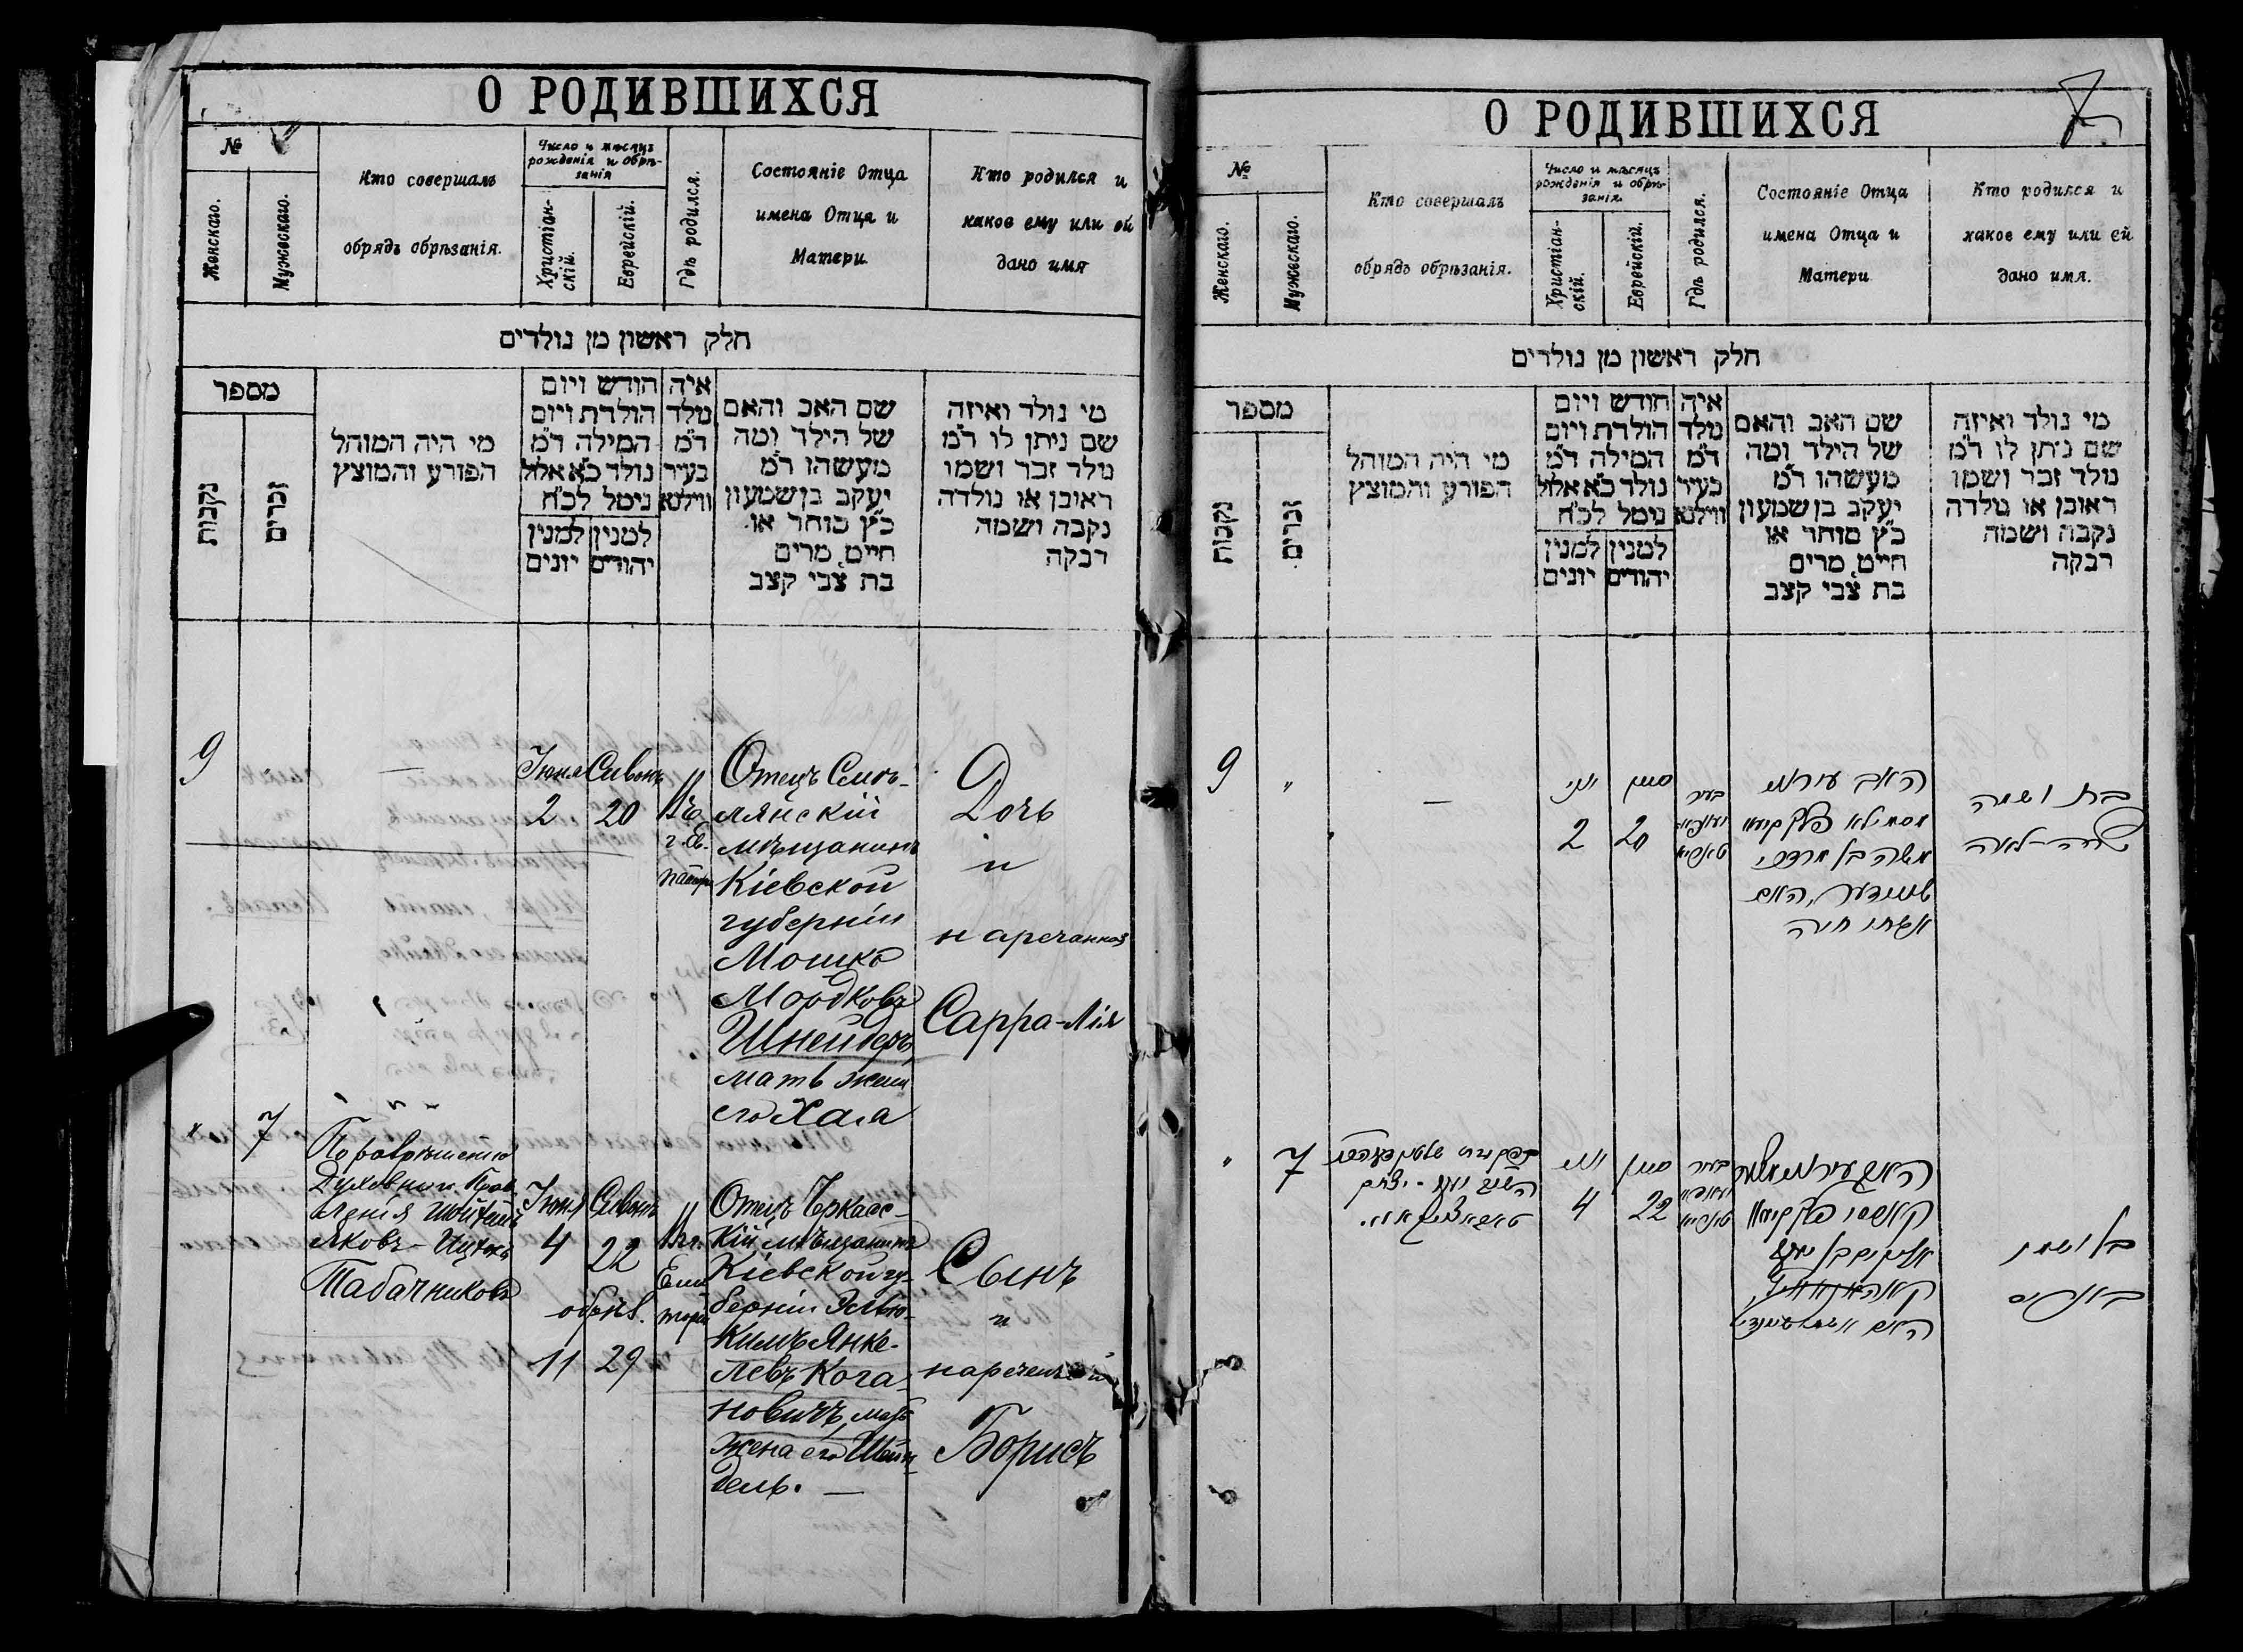 О РОДИВШИХСЯ
№
Женскаго.
Мужескаго.
Кто совершалъ
обрядъ обрѣзанія.
Число и мѣсяцъ
рожденія и обрѣ-
занія
Христіан-
скій.
Еврейскій.
Гдѣ родился.
Состояніе Отца
имена Отца и
Матери
Кто родился и
какое ему или ей
дано имя
חלק ראשון מן נולדים
מספר
נקבות
זכרים
מי היה המוהל
הפורע והמוצץ
חודש ויום
הולדת ויום
המילה ד״מ
נולד כ״א אלול
נימל לכ״ח
למנין
יונים
למנין
יהודים
איה
נולד
ד״מ
בעיר
ווילנא
שם האב והאם
של הילד ומה
מעשהו ד״מ
יעקב בן שמעון
כ״ץ סוחר או
חייט מרים
בת צבי קצב
מי נולד ואיזה
שם ניתן לו ד״מ
נולד זכר ושמו
ראובן או נולדה
נקבה ושמה
רבקה
9
—
Іюня
2
Сивонъ
20
Въ
г. Ев.
паторіи
Отецъ Смѣ-
лянскій
мѣщанинъ
Кіевской
губерніи
Мошко
Мордковъ
Шнейдеръ,
мать жена
его Хая
Дочь
и
нареченная
Сарра-Лія
"
7
По разрѣшенію
Духовнаго Прав
ленія
Яковъ-Ицхокъ
Табачниковъ
Іюня
4
Сивонъ
22
обрѣз.
11
29
Въ г.
Евпа
торіи
Отецъ Черкасс-
кій мѣщанинъ
Кіевской гу-
берніи Эльіо-
кимъ Янке-
левъ Кога-
новичъ, мать
жена его Шейн-
дель. —
Сынъ
и
нареченный
Борисъ
О РОДИВШИХСЯ
№
Женскаго.
Мужескаго.
Кто совершалъ
обрядъ обрѣзанія.
Число и мѣсяцъ
рожденія и обрѣ-
занія.
Христіан-
скій.
Еврейскій.
Гдѣ родился.
Состояніе Отца
имена Отца и
Матери
Кто родился и
какое ему или ей
дано имя.
חלק ראשון מן נולדים
מספר
נקבות
זכרים
מי היה המוהל
הפורע והמוצץ
חודש ויום
הולדת ויום
המילה ד״מ
נולד כ״א אלול
נימל לכ״ח
למנין
יונים
למנין
יהודים
איה
נולד
ד״מ
בעיר
ווילנא
שם האב והאם
של הילד ומה
מעשהו ד״מ
יעקב בן שמעון
כ״ץ סוחר או
חייט מרים
בת צבי קצב
מי נולד ואיזה
שם ניתן לו ד״מ
נולד זכר ושמו
ראובן או נולדה
נקבה ושמה
רבקה
9
"
—
יוני
2
סיון
20
בעיר
האב עירוני
משה בן מרדכי
שניידער, האם
אשתו חיה
בת ושמה
שרה-לאה
"
7
יוני
4
סיון
22
בעיר
בן ושמו